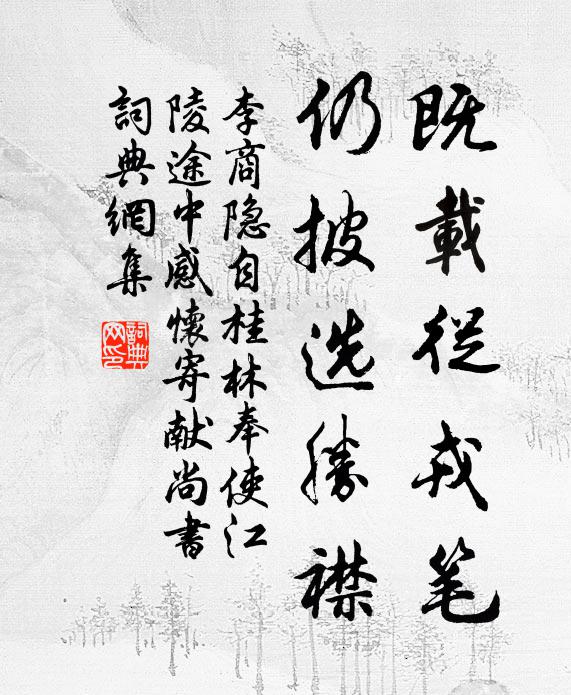 既載從戎笔
仍披选勝襟
李商隐自桂林奉使江
陵途中感懷寄献尚書
詞典網集
詞典网印